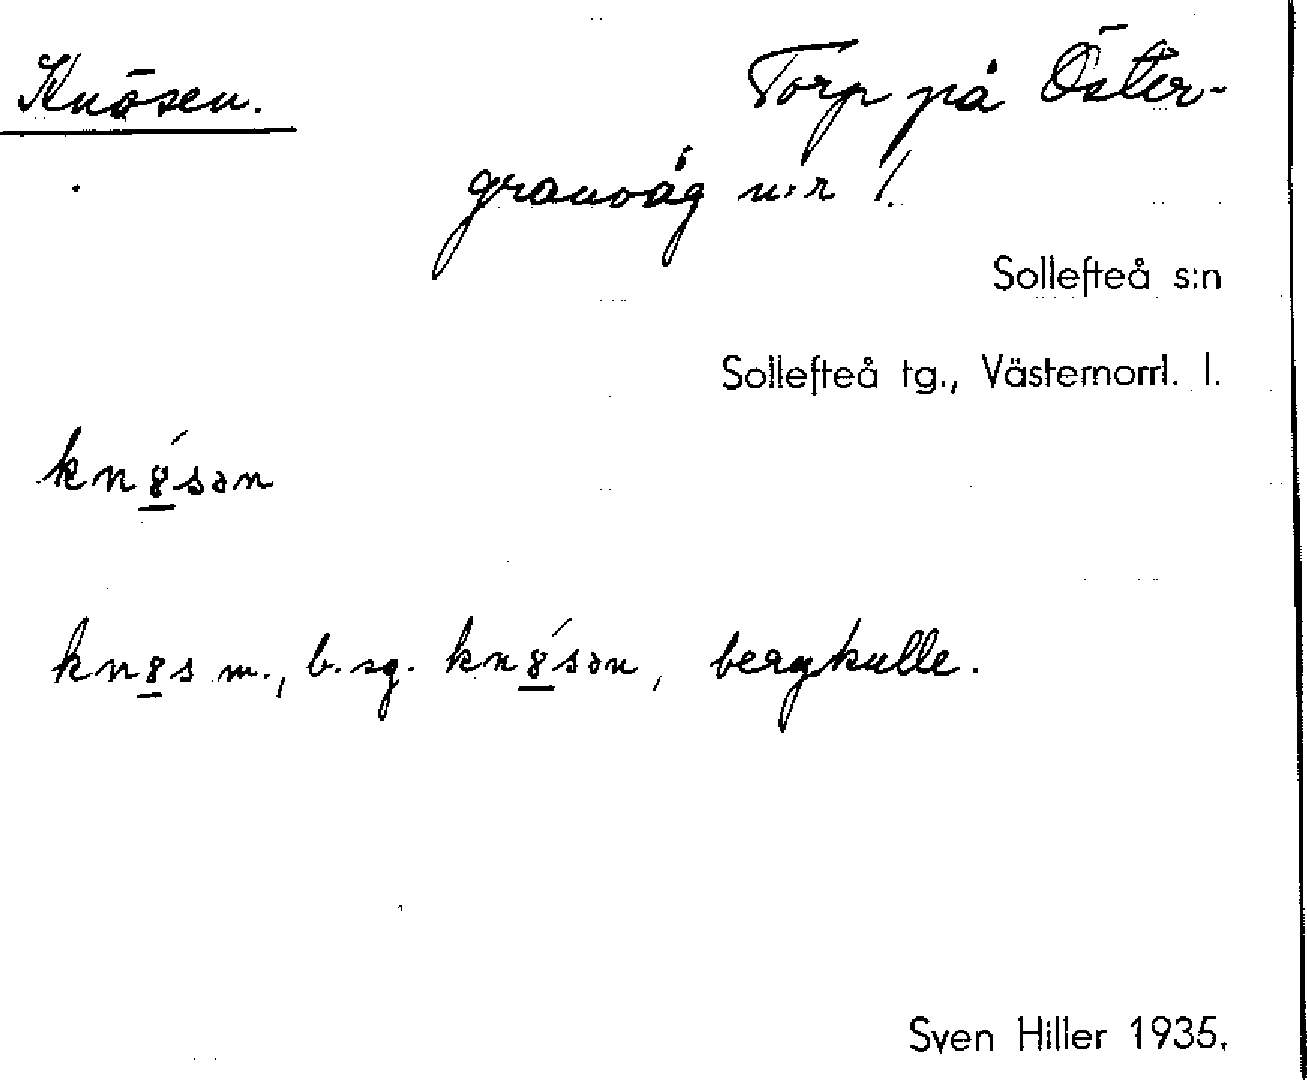 Knösen.
Torp på Öster-
granvåg n:r 1.
Sollefteå s:n
Sollefteå tg., Västernorrl. l.
knȣ́sən
knȣs m., b. sg. knȣ́sən, bergkulle.
Sven Hiller 1935.